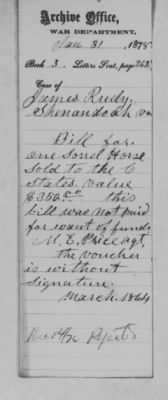 Archive Office,
WAR DEPARTMENT,
Jan 31, 1878
Book 3. Letters Sent, page 368
Case of
James Rudy,
Shenandoah Va
Bill for
one Sorrel Horse
sold to the C
States value
$350.00 this
bill was not paid
for want of funds
M. E. Price agt.
the voucher
is without
signature.
March 1864